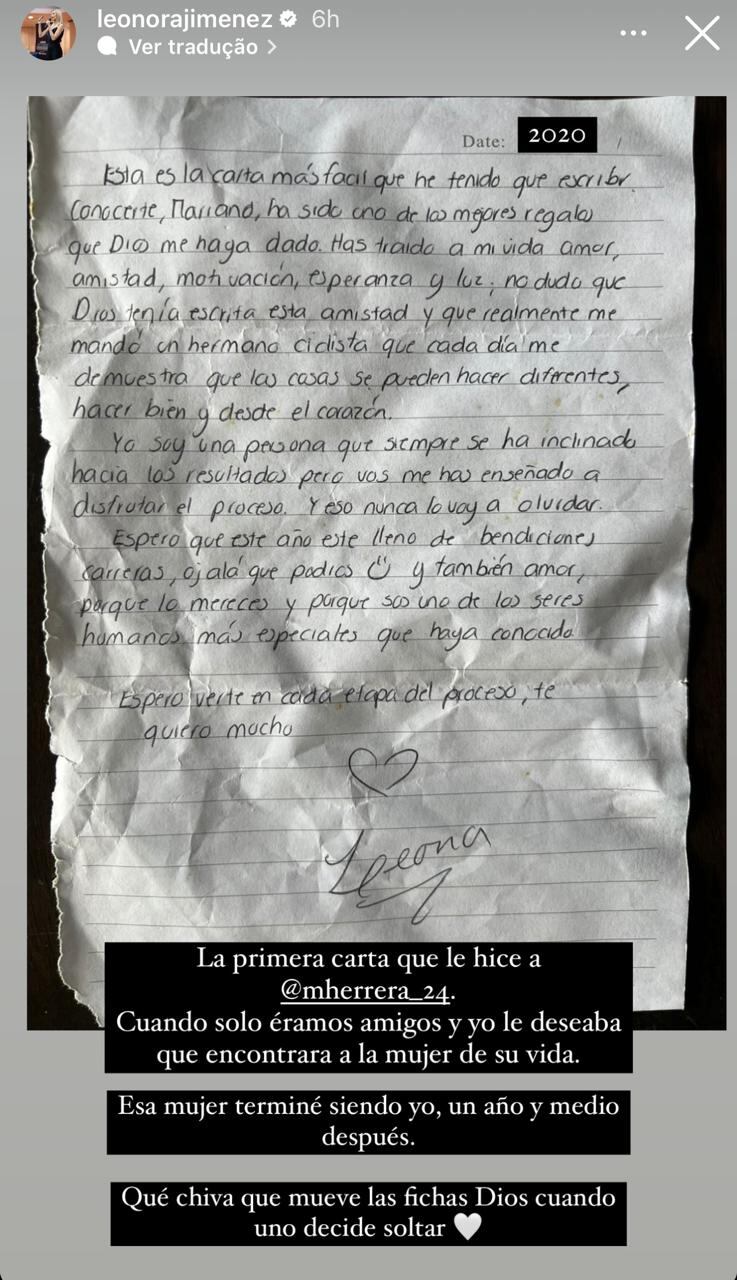 leonorajimenez 6h
Ver tradução >
Date: 2020
Esta es la carta más facil que he tenido que escribir.
Conocerte, Mariano, ha sido uno de los mejores regalos
que Dios me haya dado. Has traido a mi vida amor,
amistad, motivación, esperanza y luz; no dudo que
Dios tenía escrita esta amistad y que realmente me
mandó un hermano ciclista que cada día me
demuestra que las cosas se pueden hacer diferentes,
hacer bien y desde el corazón.
Yo soy una persona que siempre se ha inclinado
hacia los resultados pero vos me has enseñado a
disfrutar el proceso. Y eso nunca lo voy a olvidar.
Espero que este año este lleno de bendiciones
carreras, ojalá que podios y también amor,
porque lo mereces y porque sos uno de los seres
humanos más especiales que haya conocido
Espero verte en cada etapa del proceso, te
quiero mucho
Leona
La primera carta que le hice a
@mherrera_24.
Cuando solo éramos amigos y yo le deseaba
que encontrara a la mujer de su vida.
Esa mujer terminé siendo yo, un año y medio
después.
Qué chiva que mueve las fichas Dios cuando
uno decide soltar 🤍